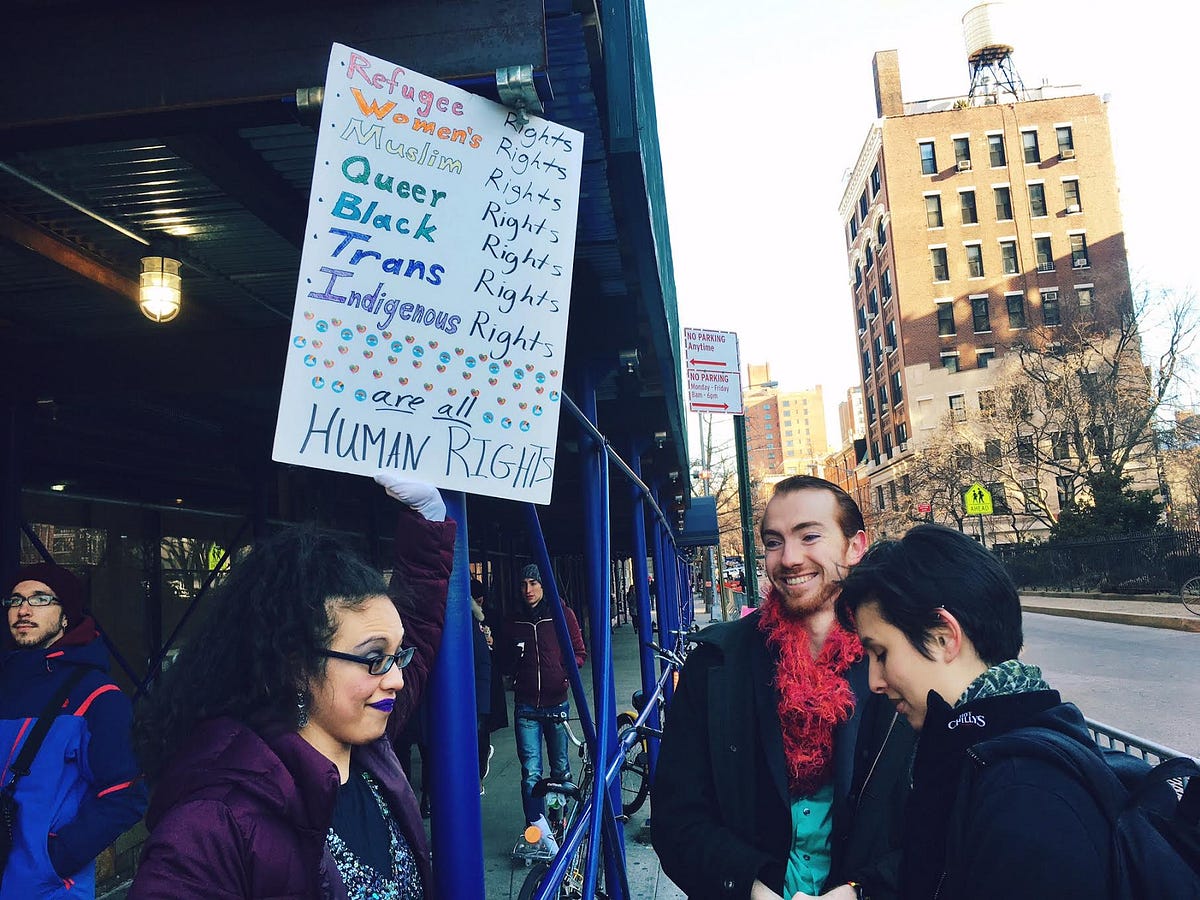 · Refugee Rights
· Women's Rights
· Muslim Rights
· Queer Rights
· Black Rights
· Trans Rights
· Indigenous Rights
are all
HUMAN RIGHTS
NO PARKING
Anytime
NO PARKING
Monday - Friday
8am - 6pm
AHEAD
CHILLYS